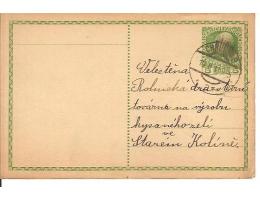 Velectěná
Rolnická družstevní
továrna na výrobu
kysaného zelí
ve
Starém Kolíně